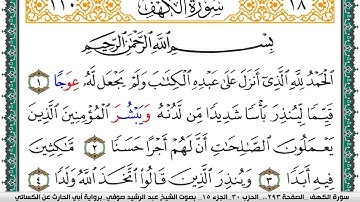 ١١٠ سُورَةُ الكَهْفِ ١٨
بِسْمِ اللَّهِ الرَّحْمَٰنِ الرَّحِيمِ
الْحَمْدُ لِلَّهِ الَّذِي أَنزَلَ عَلَىٰ عَبْدِهِ الْكِتَابَ وَلَمْ يَجْعَل لَّهُ عِوَجًا ١
قَيِّمًا لِّيُنذِرَ بَأْسًا شَدِيدًا مِّن لَّدُنْهُ وَيَبْشُرَ الْمُؤْمِنِينَ الَّذِينَ
يَعْمَلُونَ الصَّالِحَاتِ أَنَّ لَهُمْ أَجْرًا حَسَنًا ٢ مَّاكِثِينَ
فِيهِ أَبَدًا ٣ وَيُنذِرَ الَّذِينَ قَالُوا اتَّخَذَ اللَّهُ وَلَدًا ٤
سورة الكهف . الصفحة ٢٩٣ . الحزب ٣٠ الجزء ١٥ بصوت الشيخ عبد الرشيد صوفي برواية أبي الحارث عن الكسائي